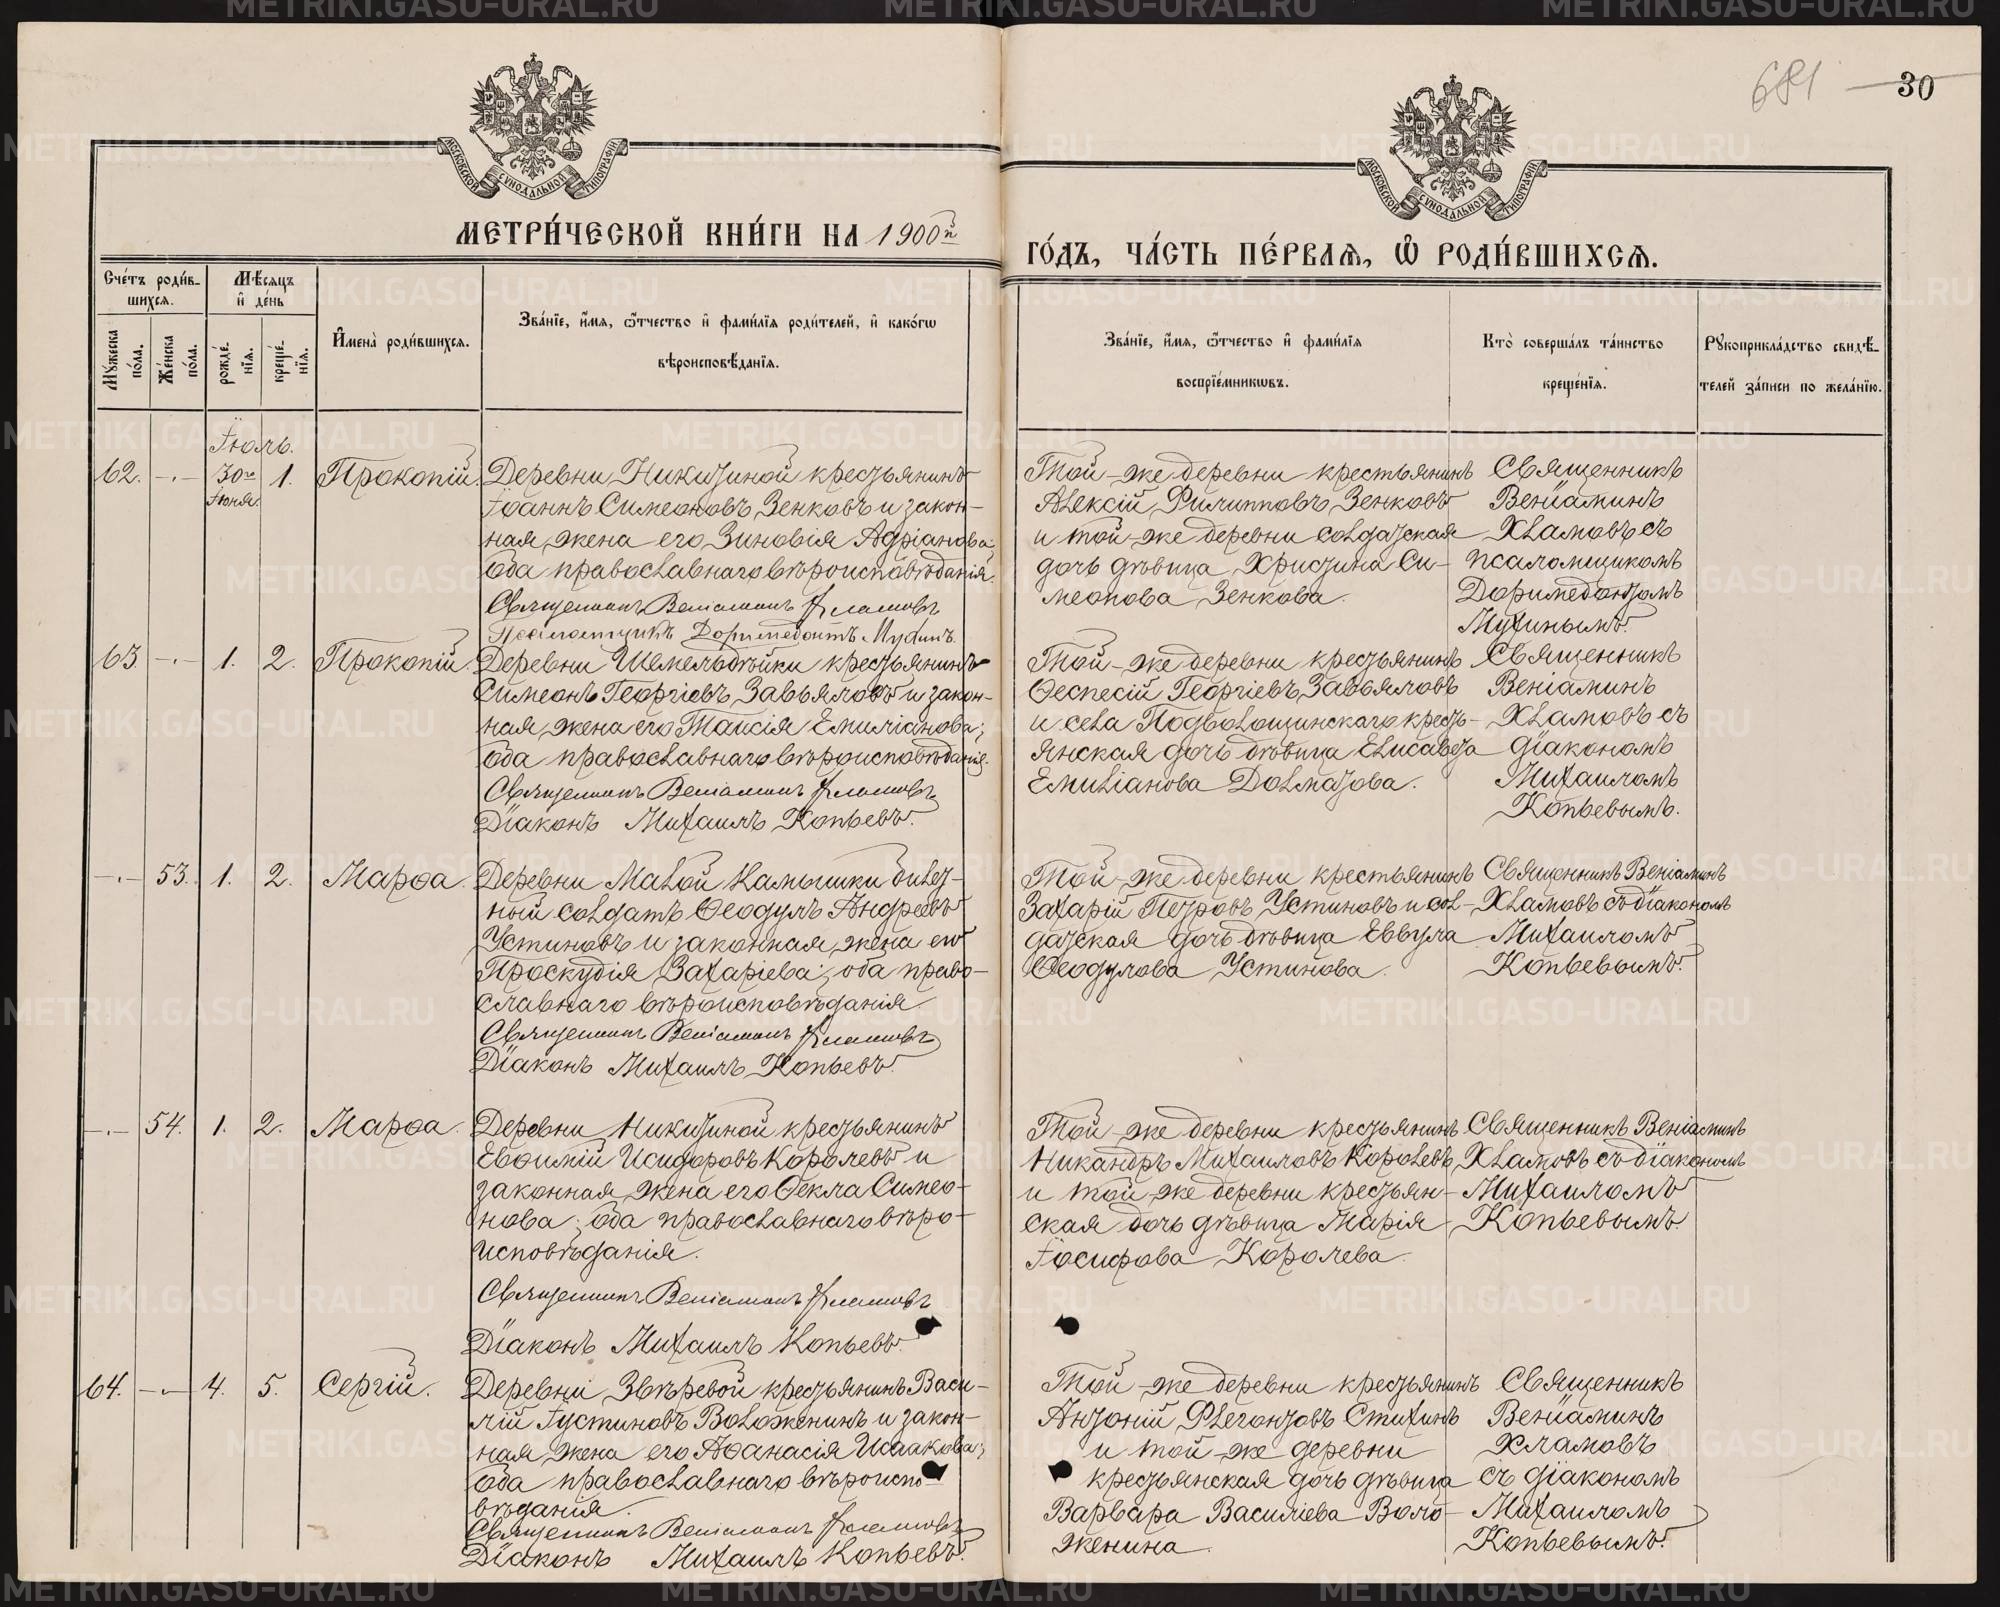 681 — 30
МОСКОВСКОЙ СѴНОДАЛЬНОЙ ТИПОГРАФІИ
МОСКОВСКОЙ СѴНОДАЛЬНОЙ ТИПОГРАФІИ
МЕТРИ́ЧЕСКОЙ КНИ́ГИ НА 1900й
ГО́ДЪ, ЧА́СТЬ ПЕ́РВАѦ, Ѽ РОДИ́ВШИХСѦ.
Сче́тъ роди́в-
шихсѧ.
Мѣ́сѧцъ
и҆ де́нь
Мꙋ́жеска
по́ла.
Же́нска
по́ла.
рожде́-
нїѧ.
креще́-
нїѧ.
И҆мена̀ роди́вшихсѧ.
Зва́нїе, и҆́мѧ, ѻ҆́тчество и҆ фами́лїѧ роди́телей, и҆ како́гѡ
вѣроисповѣ́данїѧ.
Зва́нїе, и҆́мѧ, ѻ҆́тчество и҆ фами́лїѧ
воспрїе́мникѡвъ.
Кто̀ соверша́лъ та́инство
креще́нїѧ.
Рꙋкоприкла́дство свидѣ́-
телей за́писи по жела́нїю.
Іюль.
62. -.- 30го Іюня. 1. Прокопій.
Деревни Никитиной крестьянинъ
Іоаннъ Симеоновъ Зенковъ и закон-
ная жена его Зиновія Адріанова
оба православнаго вѣроисповѣданія.
Священникъ Веніаминъ Хламовъ
Псаломщикъ Доримедонтъ Мухинъ.
Той-же деревни крестьянинъ
Алексій Филипповъ Зенковъ
и той-же деревни солдатская
дочь дѣвица Христина Си-
меонова Зенкова.
Священникъ
Веніаминъ
Хламовъ съ
псаломщикомъ
Доримедонтомъ
Мухинымъ.
63. -.- 1. 2. Прокопій.
Деревни Шемельдѣйки крестьянинъ
Симеонъ Георгіевъ Завьяловъ и закон-
ная жена его Таисія Емиліанова;
оба православнаго вѣроисповѣданія.
Священникъ Веніаминъ Хламовъ
Діаконъ Михаилъ Копьевъ.
Той-же деревни крестьянинъ
Ѳеспесій Георгіевъ Завьяловъ
и села Подволошинскаго кресть-
янская дочь дѣвица Елисавета
Емиліанова Долматова.
Священникъ
Веніаминъ
Хламовъ съ
діакономъ
Михаиломъ
Копьевымъ.
-.- 53. 1. 2. Марѳа.
Деревни Малой Камышки билет-
ный солдатъ Ѳеодулъ Андреевъ
Устиновъ и законная жена его
Проскудія Захаріева; оба право-
славнаго вѣроисповѣданія
Священникъ Веніаминъ Хламовъ
Діаконъ Михаилъ Копьевъ.
Той-же деревни крестьянинъ
Захарій Петровъ Устиновъ и сол-
датская дочь дѣвица Еввула
Ѳеодулова Устинова.
Священникъ Веніаминъ
Хламовъ съ діакономъ
Михаиломъ
Копьевымъ.
-.- 54. 1. 2. Марѳа.
Деревни Никитиной крестьянинъ
Евѳимій Исидоровъ Королевъ и
законная жена его Ѳекла Симео-
нова; оба православнаго вѣро-
исповѣданія.
Священникъ Веніаминъ Хламовъ
Діаконъ Михаилъ Копьевъ.
Той-же деревни крестьянинъ
Никандръ Михаиловъ Королевъ
и той-же деревни крестьян-
ская дочь дѣвица Марія
Іосифова Королева.
Священникъ Веніаминъ
Хламовъ съ діакономъ
Михаиломъ
Копьевымъ.
64. -.- 4. 5. Сергій.
Деревни Звѣревой крестьянинъ Васи-
лій Іустиновъ Воложенинъ и закон-
ная жена его Аѳанасія Исаакова;
оба православнаго вѣроиспо-
вѣданія.
Священникъ Веніаминъ Хламовъ
Діаконъ Михаилъ Копьевъ.
Той-же деревни крестьянинъ
Антоній Флегонтовъ Стихинъ
и той-же деревни
крестьянская дочь дѣвица
Варвара Василіева Воло-
женина.
Священникъ
Веніаминъ
Хламовъ
съ діакономъ
Михаиломъ
Копьевымъ.
METRIKI.GASO-URAL.RU